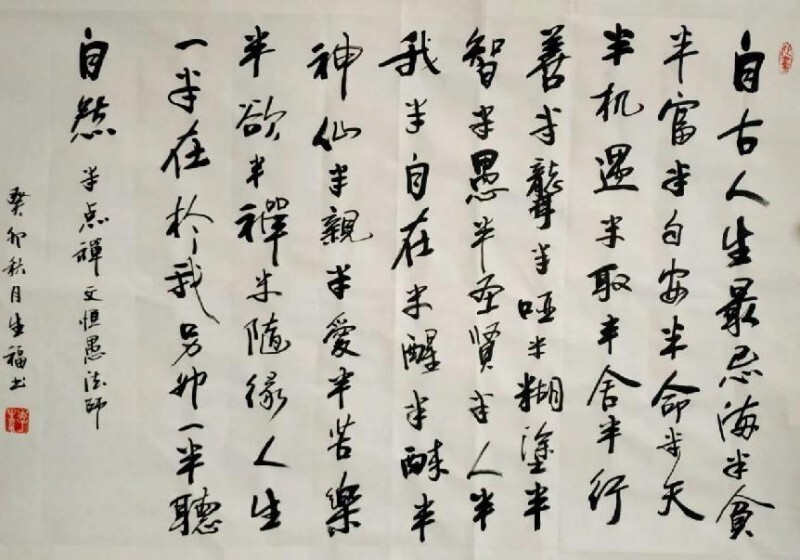 自古人生最忌满半貧
半富半自安半命半天
半机遇半取半舍半行
善半聾半哑半糊塗半
智半愚半圣贤半人半
我半自在半醒半醉半
神仙半親半愛半苦樂
半欲半禪半隨緣人生
一半在於我另外一半聽
自然 半点禅文恒愚法師
癸卯秋月生福书